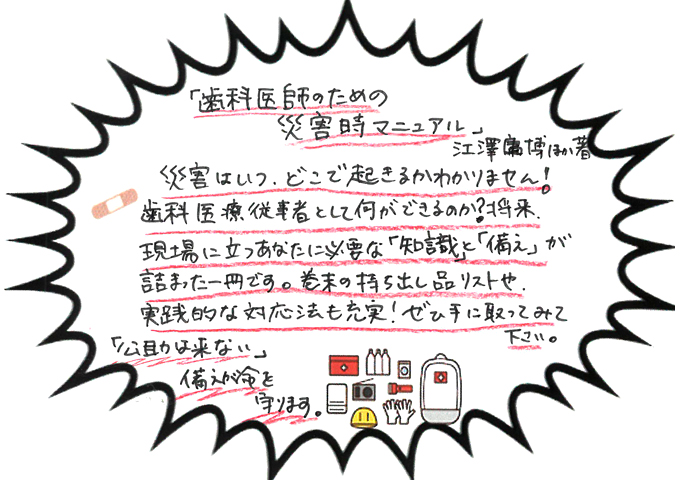 「歯科医師のための
災害時マニュアル」
江澤庸博ほか著
災害はいつ、どこで起きるかわかりません!
歯科医療従事者として何ができるのか?将来、
現場に立つあなたに必要な「知識」と「備え」が
詰まった一冊です。巻末の持ち出し品リストや、
実践的な対応法も充実!ぜひ手に取ってみて
下さい。
「公助は来ない」
備えが命を
守ります。